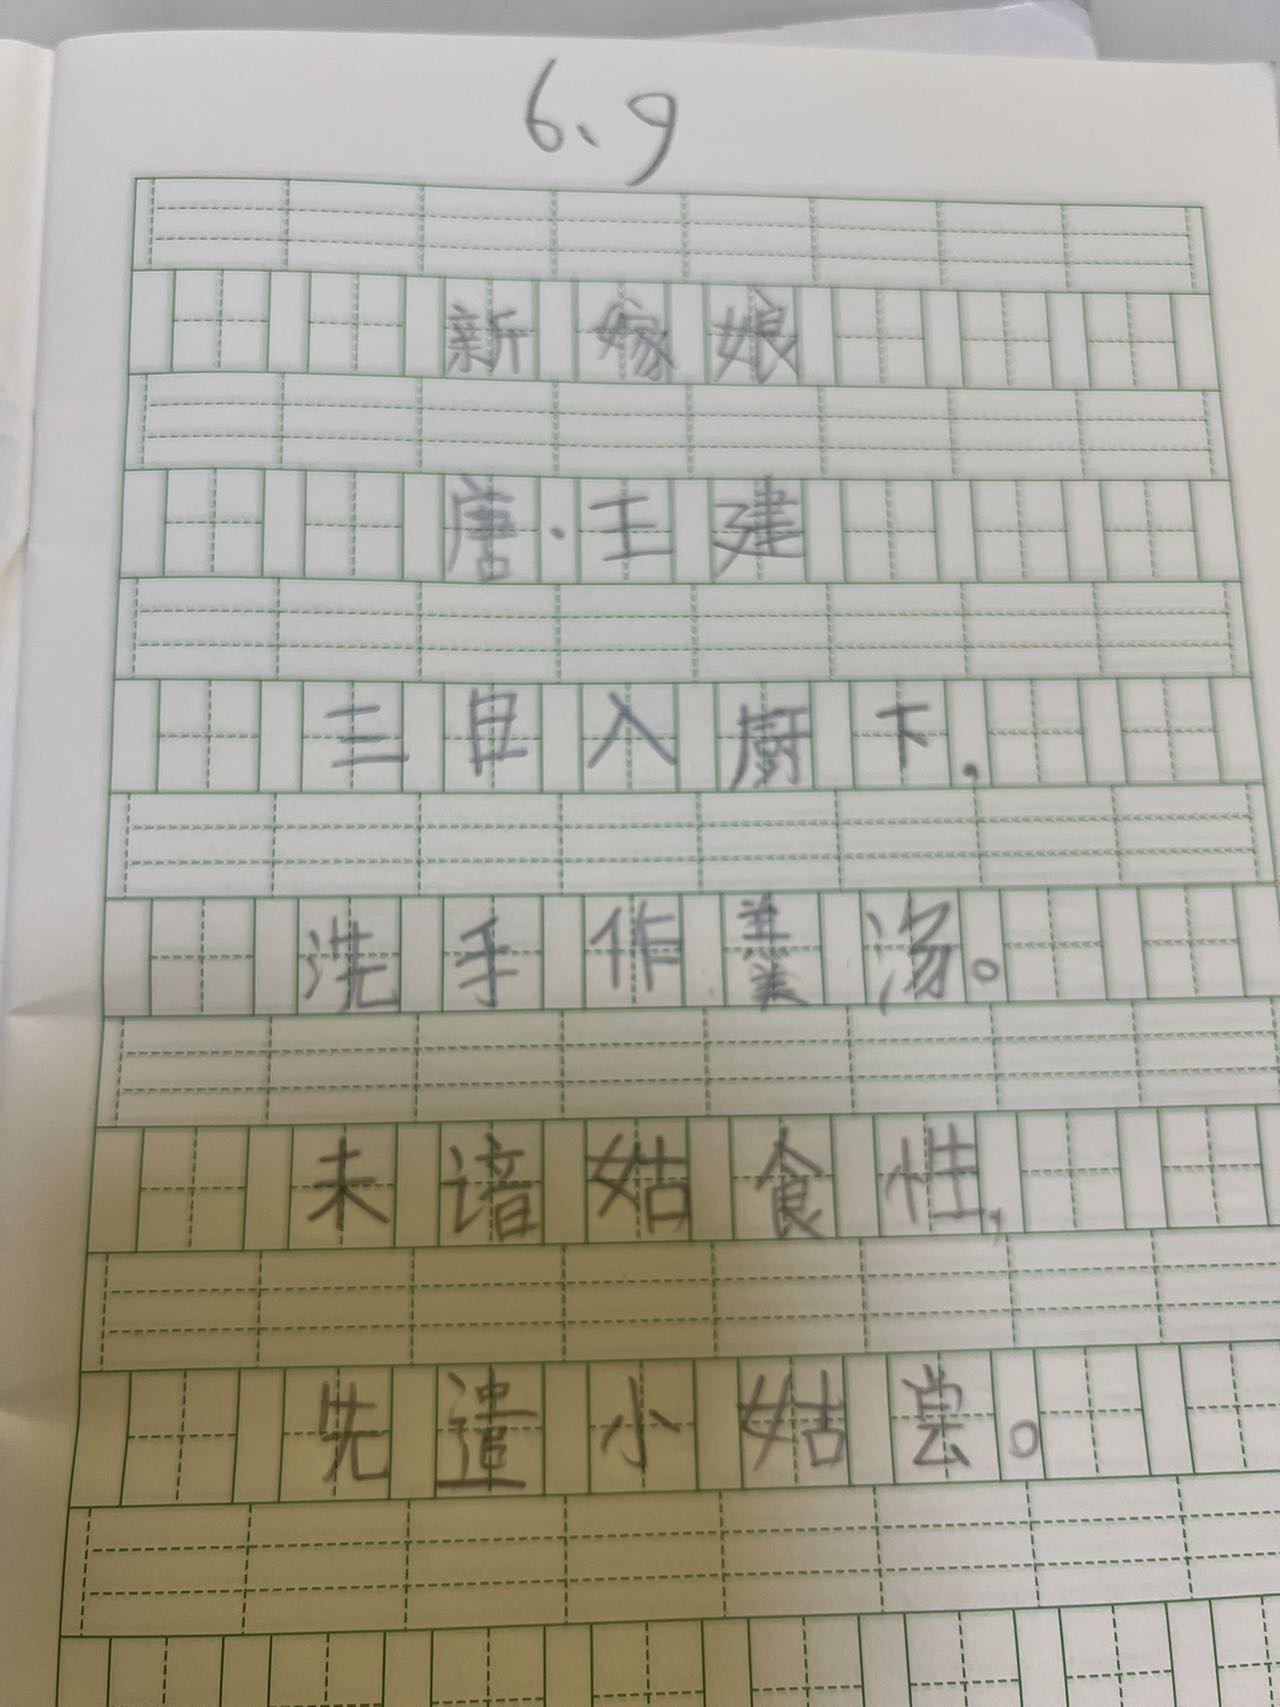 6、9
新嫁娘
唐·王建
三日入厨下，
洗手作羹汤。
未谙姑食性，
先遣小姑尝。